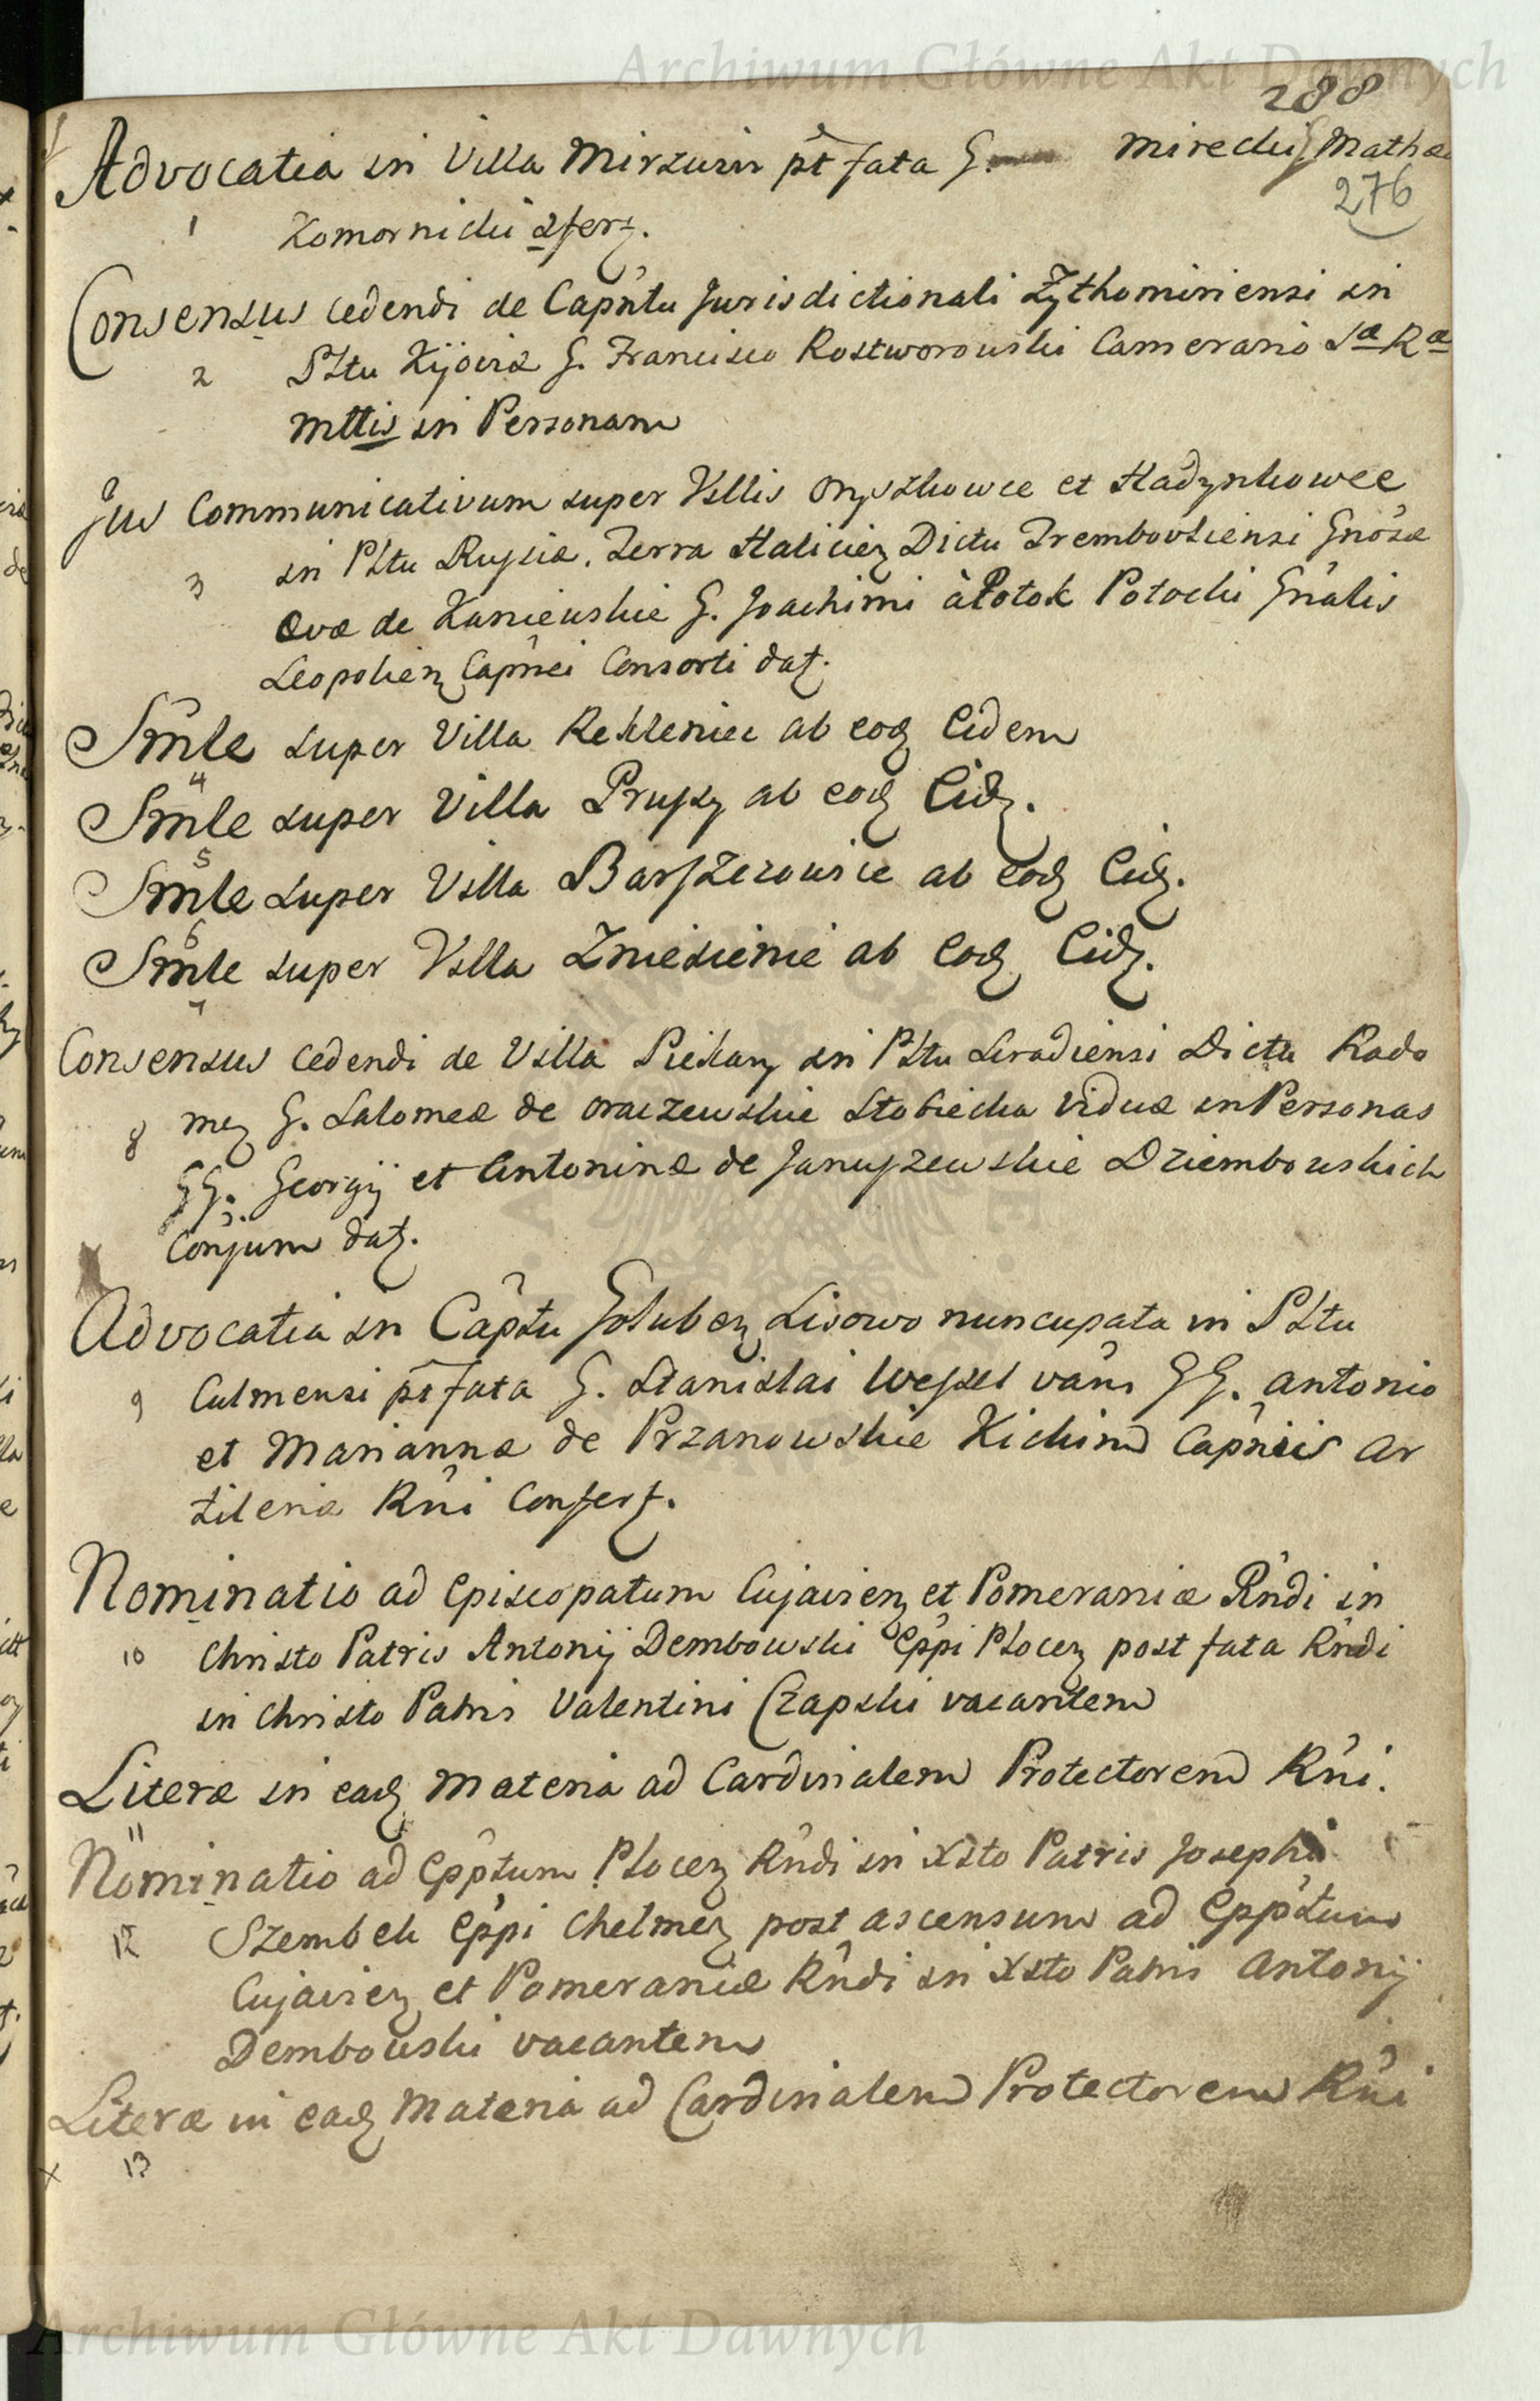 Archiwum Główne Akt Dawnych
288
Advocatia in Villa Mirzurin pt fata G. Mirecki G Mathæ
276
1 Komornicki 2fert.
Consensus cedendi de Capntu Jurisdictionali Zythomiriensi in
2 Pltu Kijoviæ G. Francisco Rostworowski Camerario Sæ Ræ
Mttis in Personam
Jus Communicativum super Vsllis Onyszkowce et Hadynkowce
3 in Pltu Russiæ, Terra Halicien Dictu Trembovliensi Gnosæ
Evæ de Kaniewskie G. Joachimi à Potok Potocki Gnalis
Leopolien Capnei Consorti dat.
Smle super Villa Rekleniec ab eod Eidem
4
Smle super Villa Prussy ab eod Eid.
5
Smle super Vslla Barszczowice ab eod Eid.
6
Smle super Vslla Zniesienie ab Eod Eid.
7
Consensus cedendi de Vslla Piekary in Pltu Siradiensi Dictu Rado
8 men G. Salomeæ de Oraczewskie Stobiecka Viduæ in Personas
GG. Georgij et Antoninæ de Januszewskie Dziembowskich
Conjum dat.
Advocatia in Capstu Goluben Lisowo nuncupata in Pltu
9 Culmensi pt fata G. Stanislai Wessel vans GG. Antonio
et Mariannæ de Przanowskie Kickim Capneis Ar
tileriæ Rni Confert.
Nominatio ad Episcopatum Cujavien et Pomeraniæ Rndi in
10 Christo Patris Antonij Dembowski Eppi Plocen post fata Rndi
in Christo Patris Valentini Czapski vacantem
Literæ in ead Materia ad Cardinalem Protectorem Rni.
11
Nominatio ad Epptum Plocen Rndi in Xsto Patris Josephi
12 Szembek Eppi Chelmen post ascensum ad Epptum
Cujavien et Pomeraniæ Rndi in Xsto Patris Antonij
Dembowski vacantem
Literæ in ead Materia ad Cardinalem Protectorem Rni
x 13
Archiwum Główne Akt Dawnych